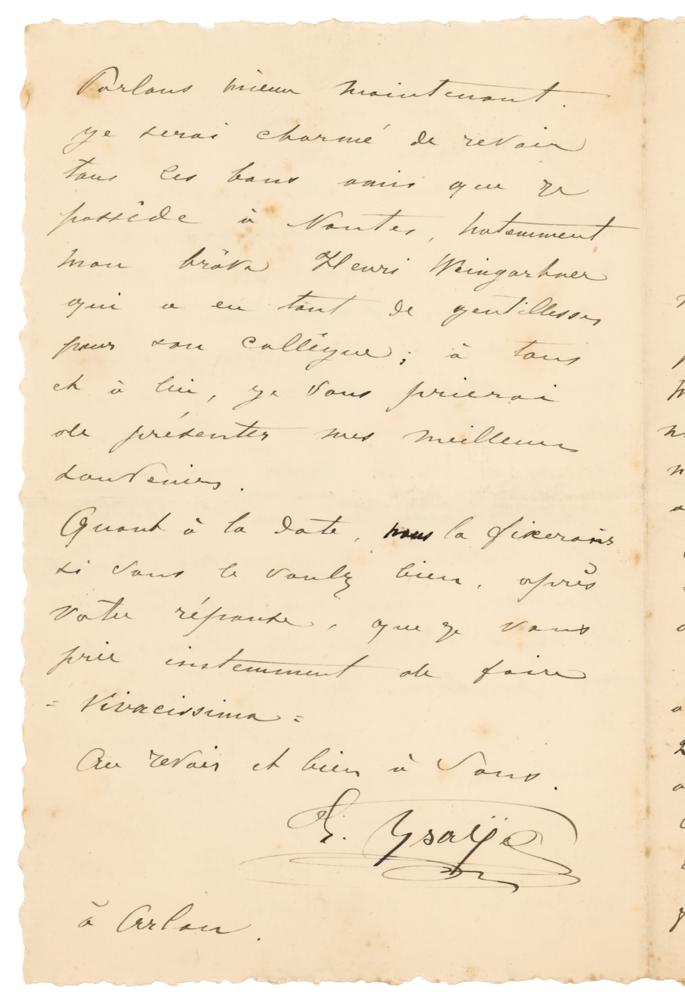 Parlons mieux maintenant.
je serai charmé de revoir
tous les bons amis que je
possède à Nantes, notamment
mon brâve Henri Weingartner
qui a eu tant de gentillesses
pour son collègue ; à tous
et à lui, je vous prierai
de présenter mes meilleurs
souvenirs.
Quant à la date, nous la fixerons
si vous le voulez bien, après
votre réponse, que je vous
prie instemment de faire
= Vivacissima =
Au revoir et bien à vous.
E. Ysaÿe
à Arlon.